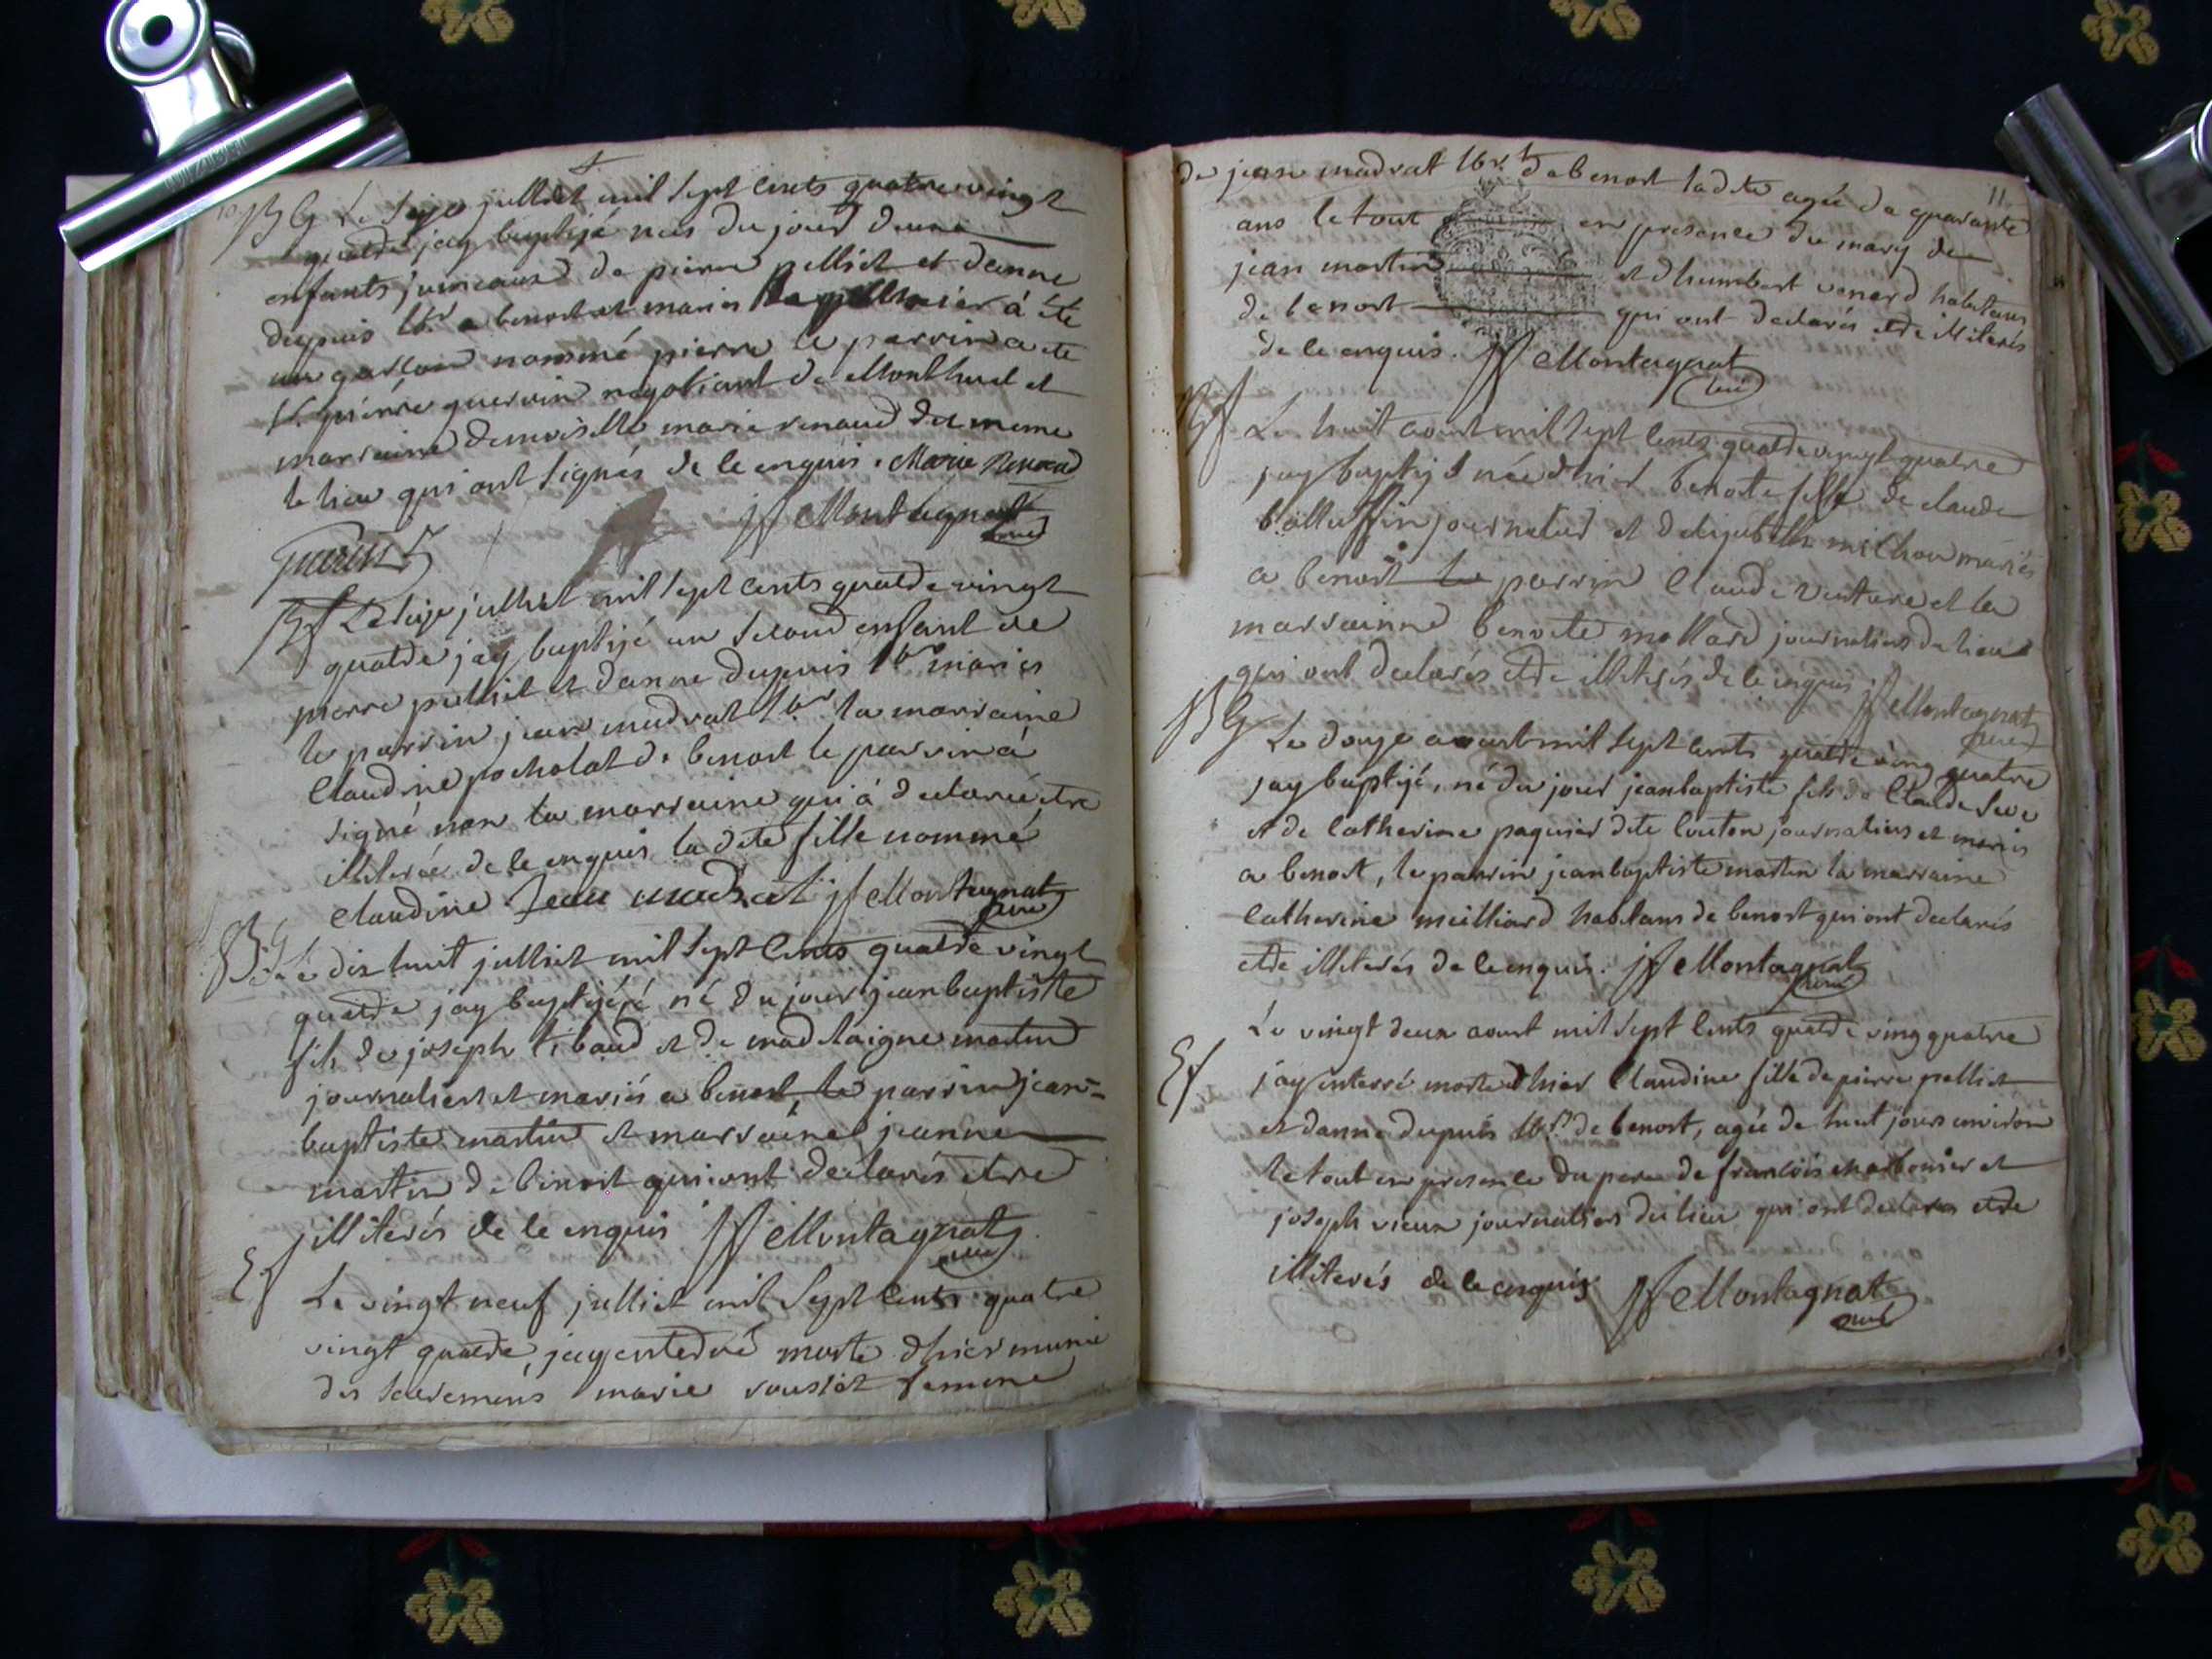 BG Le seze julliet mil sept cents quatre vingt
quatre jay baptizé nés du jour deux
enfants jumeaux de pierre pelliet et danne
dupuis lbr a benost et mariés le premier à été
un garson nommé pierre le parrin a ete
sr. pierre guerrin negotiant de Montluel et
marraine demoiselle marie renaud du meme
le lieu qui ont signés de ce enquis. Marie Renaud
jf Montagnat
curé
guerin
Bf Le seze julliet mil sept cents quatre vingt
quatre jay baptizé un second enfant de
pierre pelliet et danne dupuis lbr mariés
le parrin jean madrat lbr la marraine
Claudine pocholat de benost le parrin à
signé non la marraine qui à declarée etre
illiterée de ce enquis la dite fille nommé
claudine Jean madrat jf Montagnat
curé
B.G Le dix huit julliet mil sept cents quatre vingt
quatre jay baptizé né du jour jean baptiste
fils de joseph tibaud et de madelaigne martin
journaliers et mariés a benost, le parrin jean=
baptiste martin et marraine jeanne
martin de benost qui ont declarés etre
illiterés de ce enquis jf Montagnat
curé
Ef
Le vingt neuf julliet mil sept cents quatre
vingt quatre, jay enterré morte dhier munie
des sacremens marie rousset femme
11
de jean madrat lbr. de benost ladite agée de quarante
ans le tout en presence du mary de
jean martin et dhumbert venard habitans
de benost qui ont declarés etre illiterés
de ce enquis. jf Montagnat
curé
Bf
Le huit aoust mil sept cents quatre vingt quatre
jay baptizé née dhier benoite fille de claude
balluffin journalier et delizabeth milhou mariés
a benost le parrin Claude venture et la
marrainne benoite mollard journaliers du lieu
qui ont declarés etre illiterés de ce enquis jf Montagnat
curé
BG
Le douze aoust mil sept cents quatre ving quatre
jay baptizé, né du jour jean baptiste fils de Claude seve
et de Catherine paquier dite Couton journaliers et mariés
a benost, le parrin jean baptiste martin la marraine
Catherine meilliard habitans de benost qui ont declarés
etre illiterés de ce enquis. jf Montagnat
curé
Ef
Le vingt deux aoust mil sept cents quatre ving quatre
jay enterré morte dhier Claudine fille de pierre pelliet
et danne dupuis lbr de benost, agée de huit jours environ
le tout en presence du pere de francois charbonier et
joseph vieux journaliers du lieu qui ont declarés etre
illiterés de ce enquis jf Montagnat
curé